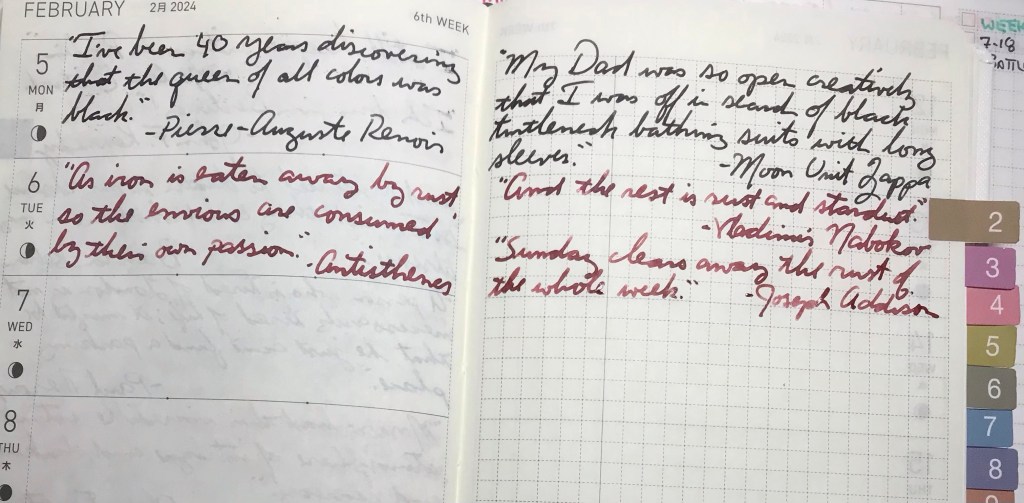 FEBRUARY 2月 2024
6th WEEK
5
MON
月
"I've been 40 years discovering
that the queen of all colors was
black."
-Pierre-Auguste Renoir
6
TUE
火
"As iron is eaten away by rust,
so the envious are consumed
by their own passion."
-Antisthenes
7
WED
水
8
THU
木
"My Dad was so open creatively
that I was off in search of black
turtleneck bathing suits with long
sleeves."
-Moon Unit Zappa
"And the rest is rust and stardust."
-Vladimir Nabokov
"Sunday clears away the rust of
the whole week."
-Joseph Addison
WEEK
7-18
2
3
4
5
6
7
8